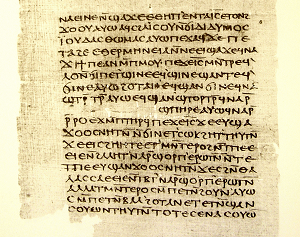 ⲛⲁⲉⲓⲛⲉⲛ̄ϣⲁϫⲉⲉⲑⲏⲡⲉⲛⲧⲁⲓ̅ⲥ̅ⲉⲧⲟⲛϩ
ϫⲟⲟⲩⲁⲩⲱⲁϥⲥϩⲁⲓ̈ⲥⲟⲩⲛ̄ϭⲓⲇⲓⲇⲩⲙⲟⲥ
ⲓ̈ⲟⲩⲇⲁⲥⲑⲱⲙⲁⲥⲁⲩⲱⲡⲉϫⲁϥϫⲉⲡⲉ
ⲧⲁϩⲉⲉⲑⲉⲣⲙⲏⲛⲉⲓⲁⲛ̄ⲛⲉⲉⲓϣⲁϫⲉϥⲛⲁ
ϫⲓϯⲡⲉⲁⲛⲙ̄ⲡⲙⲟⲩⲡⲉϫⲉⲓ̅ⲥ̅ⲙⲛ̄ⲧⲣⲉϥ
ⲗⲟⲛ̄ϭⲓⲡⲉⲧϣⲓⲛⲉⲉϥϣⲓⲛⲉϣⲁⲛⲧⲉϥ
ϭⲓⲛⲉⲁⲩⲱϩⲟⲧⲁⲛⲉϥϣⲁⲛϭⲓⲛⲉϥⲛⲁ
ϣⲧⲣ̄ⲧⲣ̄ⲁⲩⲱⲉϥϣⲁⲛϣⲧⲟⲣⲧⲣ̄ϥⲛⲁⲣ̄
ϣⲡⲏⲣⲉⲁⲩⲱϥⲛⲁⲣ̄
ⲣ̄ⲣⲟⲉϫⲙ̄ⲡⲧⲏⲣϥⲡⲉϫⲉⲓ̅ⲥ̅ϫⲉⲉⲩϣⲁ
ϫⲟⲟⲥⲛⲏⲧⲛ̄ⲛ̄ϭⲓⲛⲉⲧⲥⲱⲕϩⲏⲧⲧⲏⲩⲧⲛ̄
ϫⲉⲉⲓⲥϩⲏⲏⲧⲉⲉⲧⲙⲛ̄ⲧⲉⲣⲟϩⲛ̄ⲧⲡⲉ
ⲉⲉⲓⲉⲛ̄ϩⲁⲗⲏⲧⲛⲁⲣ̄ϣⲟⲣⲡⲉⲣⲱⲧⲛ̄ⲛ̄ⲧⲉ
ⲧⲡⲉⲉⲩϣⲁⲛϫⲟⲟⲥⲛⲏⲧⲛ̄ϫⲉⲥϩⲛ̄ⲑⲁ
ⲗⲁⲥⲥⲁⲉⲉⲓⲉⲛ̄ⲧⲃⲧⲛⲁⲣ̄ϣⲟⲣⲡⲉⲣⲱⲧⲛ̄
ⲁⲗⲗⲁⲧⲙⲛ̄ⲧⲉⲣⲟⲥⲙ̄ⲡⲉⲧⲛ̄ϩⲟⲩⲛⲁⲩⲱ
ⲥⲙ̄ⲡⲉⲧⲛ̄ⲃⲁⲗϩⲟⲧⲁⲛⲉⲧⲉⲧⲛ̄ϣⲁⲛ
ⲥⲟⲩⲱⲛⲧⲏⲩⲧⲛ̄ⲧⲟⲧⲉⲥⲉⲛⲁⲥⲟⲩⲱ